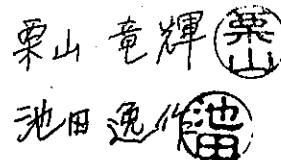 栗山 竜輝 栗山
池田 逸作 池田